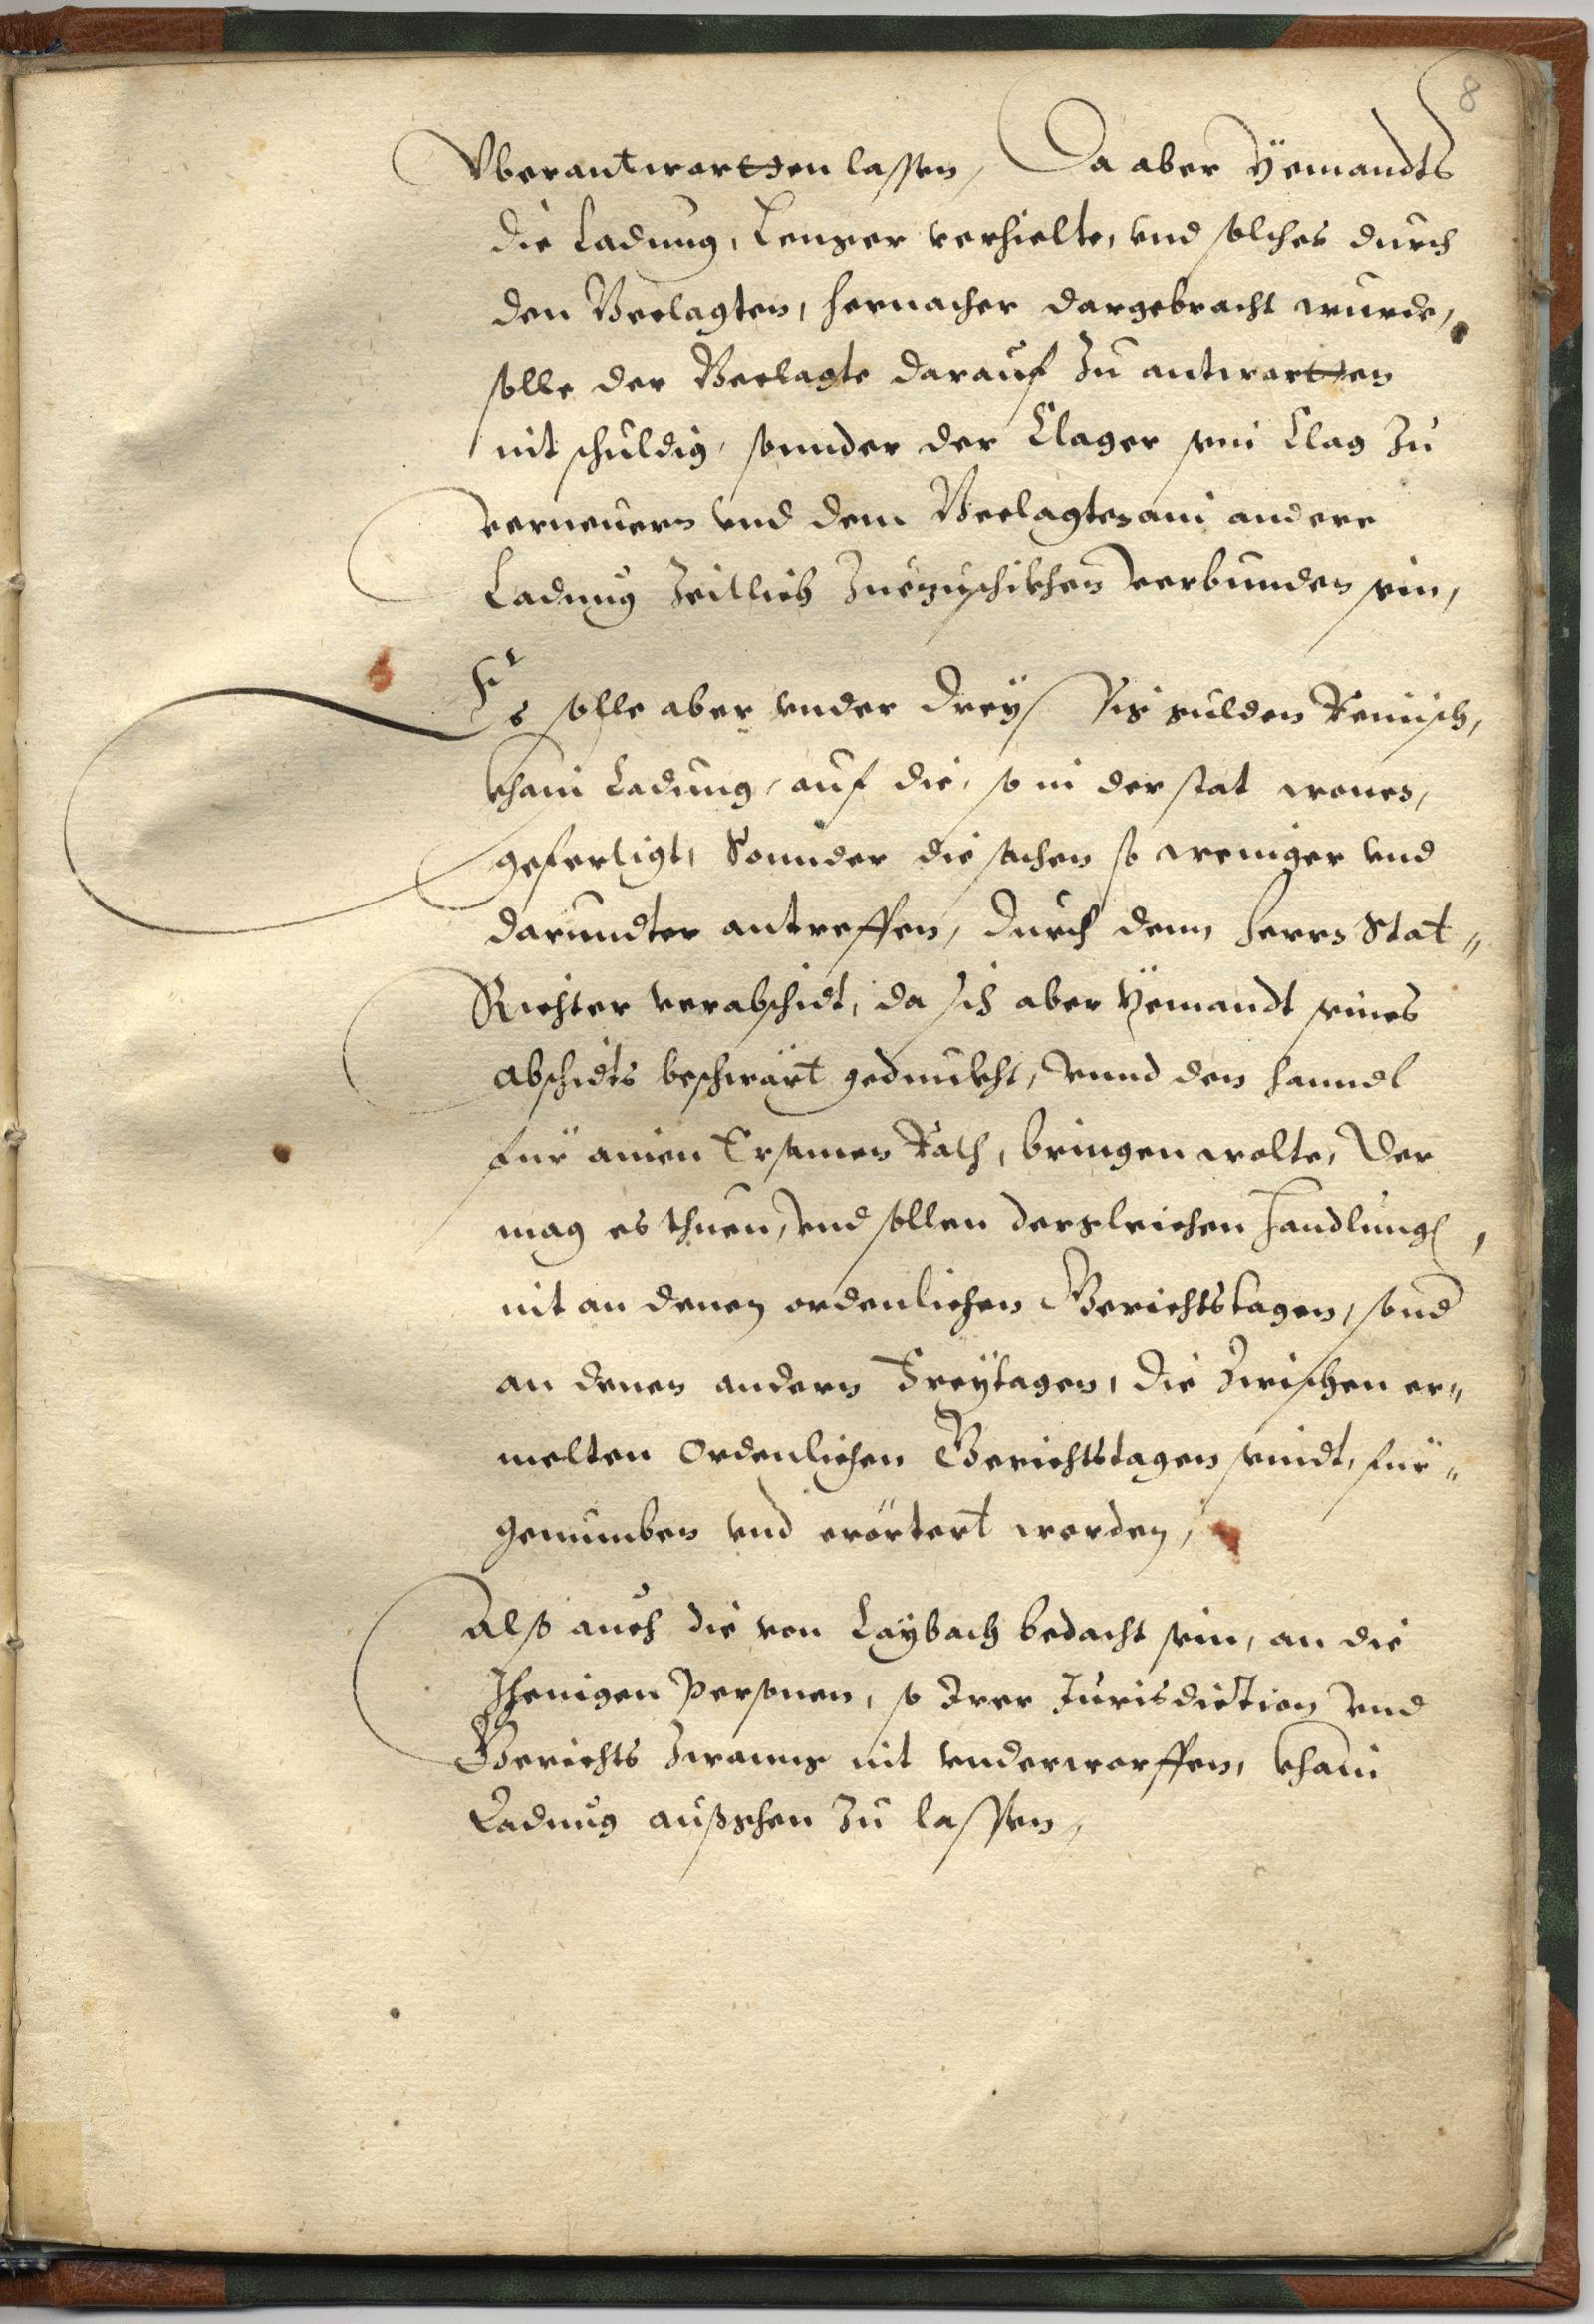 8
Vberantwortten lassen, Da aber Yemandts
die Ladung, Lenger verhielte, vnd solches durch
den Beclagten, hernacher dargebracht wurde,
solle der Beclagte darauf Zu antwortten
nit schuldig, sonnder der Clager sein Clag Zu
verneuern vnd dem Beclagten ain andere
Ladung Zeitlich Zuezuschikhen verbunden sein,
Es solle aber vnder Drey gulden Reinisch,
khain Ladung, auf die, so in der stat wonen,
gefertigt, Sonnder die sachen so weniger vnd
darundter antreffen, durch denn herrn Stat„
Richter verabschidt, da sich aber Yemandt seines
Abschidts beschwärt gedunkht, vnnd den hanndl
für ainen Ersamen Rath, bringen wolte, Der
mag es thuen, vnd sollen dergleichen handlungen,
nit an denen ordenlichen Gerichtstagen, sond
an denen andern Freytagen, die Zwischen er„
melten Ordenlichen Gerichtstagen seindt, für„
genumben vnd erörtert werden,
Also auch die von Laybach bedacht sein, an die
Jhenigen Personen, so Irer Jurisdiction vnd
Gerichts Zwanng nit vnderworffen, khain
Ladung außgehen Zu lassen,